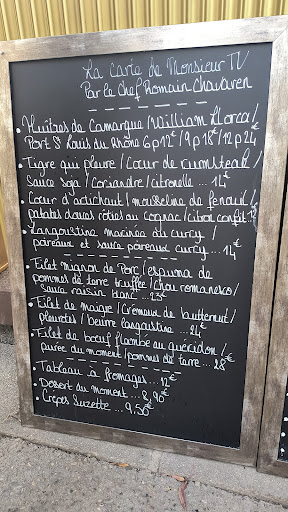 La Carte de Monsieur TV
Par le Chef Romain Chavaren
• Huîtres de Camargue/William Llorca/
Port St Louis du Rhône 6p12€/9p18€/12p24
• Tigre qui pleure / Cœur de rumsteak /
Sauce Soja / coriandre / citronelle ... 14€
• Cœur d'artichaut / mousseline de fenouil /
patates douces rôties au cognac / citron confit 12€
• Langoustine marinée du curry /
poireaux et sauce poireaux curry ... 14€
• Filet mignon de Porc / espuma de
pommes de terre truffée / chou romanesco /
sauce raisin blanc ... 23€
• Filet de maigre / Crémeux de butternut /
pleurotes / beurre langoustine ... 24€
• Filet de bœuf flambé au guéridon /
purée du moment / pommes de terre ... 28€
• Tableau à fromages ... 12€
• Dessert du moment ... 8,90€
• Crêpes Suzette ... 9,50€